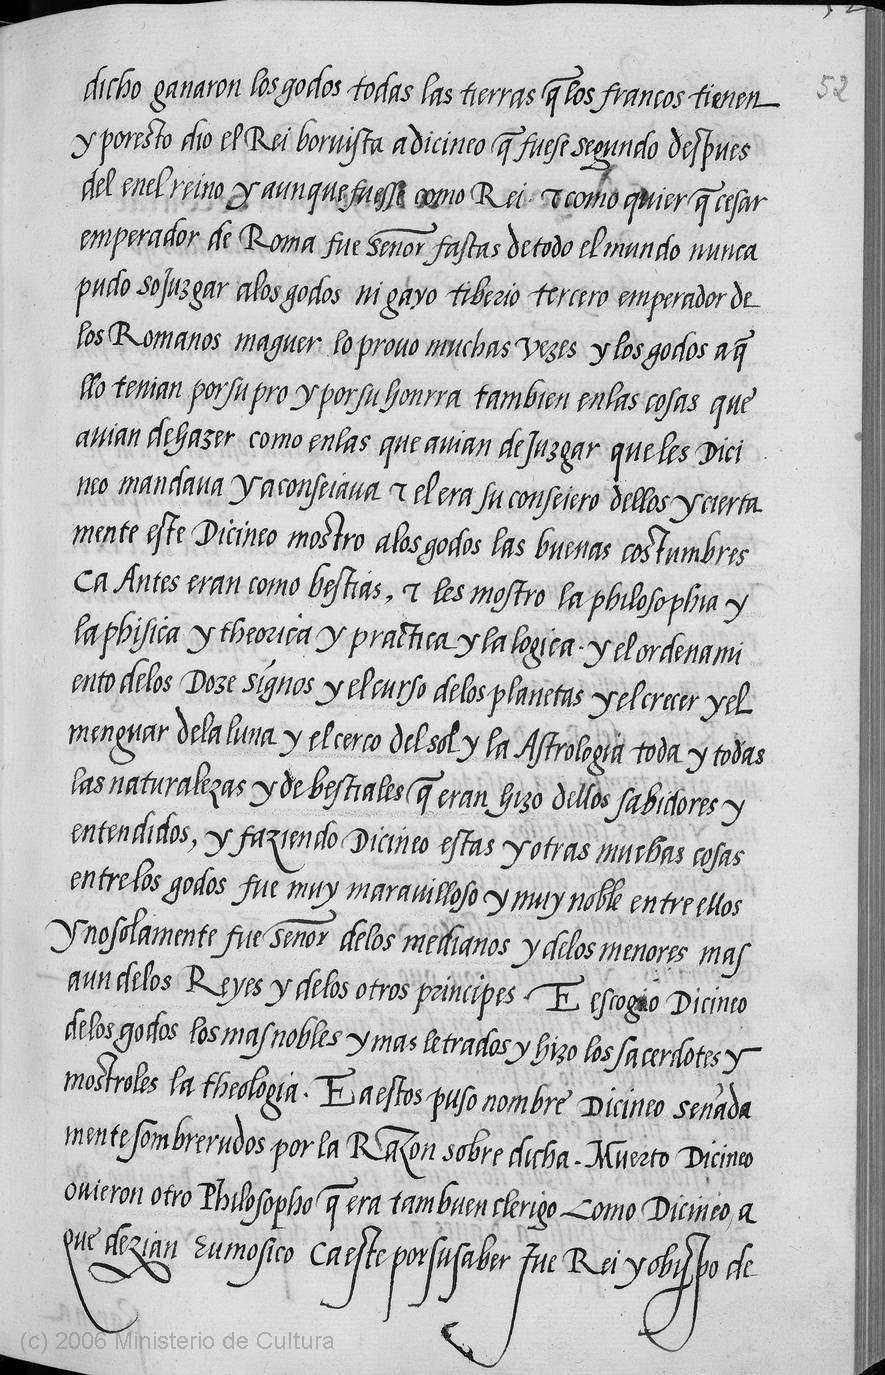 52
dicho ganaron los godos todas las tierras q̃ los francos tienen
y por esto dio el Rei boruista a dicineo q̃ fuese segundo despues
del en el reino y aunque fuesse como Rei · τ como quier q̃ cesar
emperador de Roma fue señor fastas de todo el mundo nunca
pudo sojuzgar a los godos ni gayo tiberio tercero emperador de
los Romanos maguer lo prouo muchas vezes y los godos aq̃
llo tenian por su pro y por su honrra tambien en las cosas que
auian de hazer como en las que auian de Juzgar que les Dici
neo mandaua y aconseiaua τ el era su conseiero dellos y cierta
mente este Dicineo mostro a los godos las buenas costumbres
Ca Antes eran como bestias, τ les mostro la philosophia y
la phisica y theorica y practica y la logica · y el ordenami
ento de los Doze signos y el curso de los planetas y el crecer y el
menguar de la luna y el cerco del sol y la Astrologia toda y todas
las naturalezas y de bestiales q̃ eran hizo dellos sabidores y
entendidos, y faziendo Dicineo estas y otras muchas cosas
entre los godos fue muy marauilloso y muy noble entre ellos
y no solamente fue señor de los medianos y de los menores mas
aun de los Reyes y de los otros principes · E escogio Dicineo
de los godos los mas nobles y mas letrados y hizo los sacerdotes y
mostroles la theologia · E a estos puso nombre Dicineo señada
mente sombrerudos por la Razon sobre dicha · Muerto Dicineo
ouieron otro Philosopho q̃ era tambuen clerigo Como Dicineo, a
que dezian Eumosico Ca este por su saber fue Rei y obispo de
(c) 2006 Ministerio de Cultura